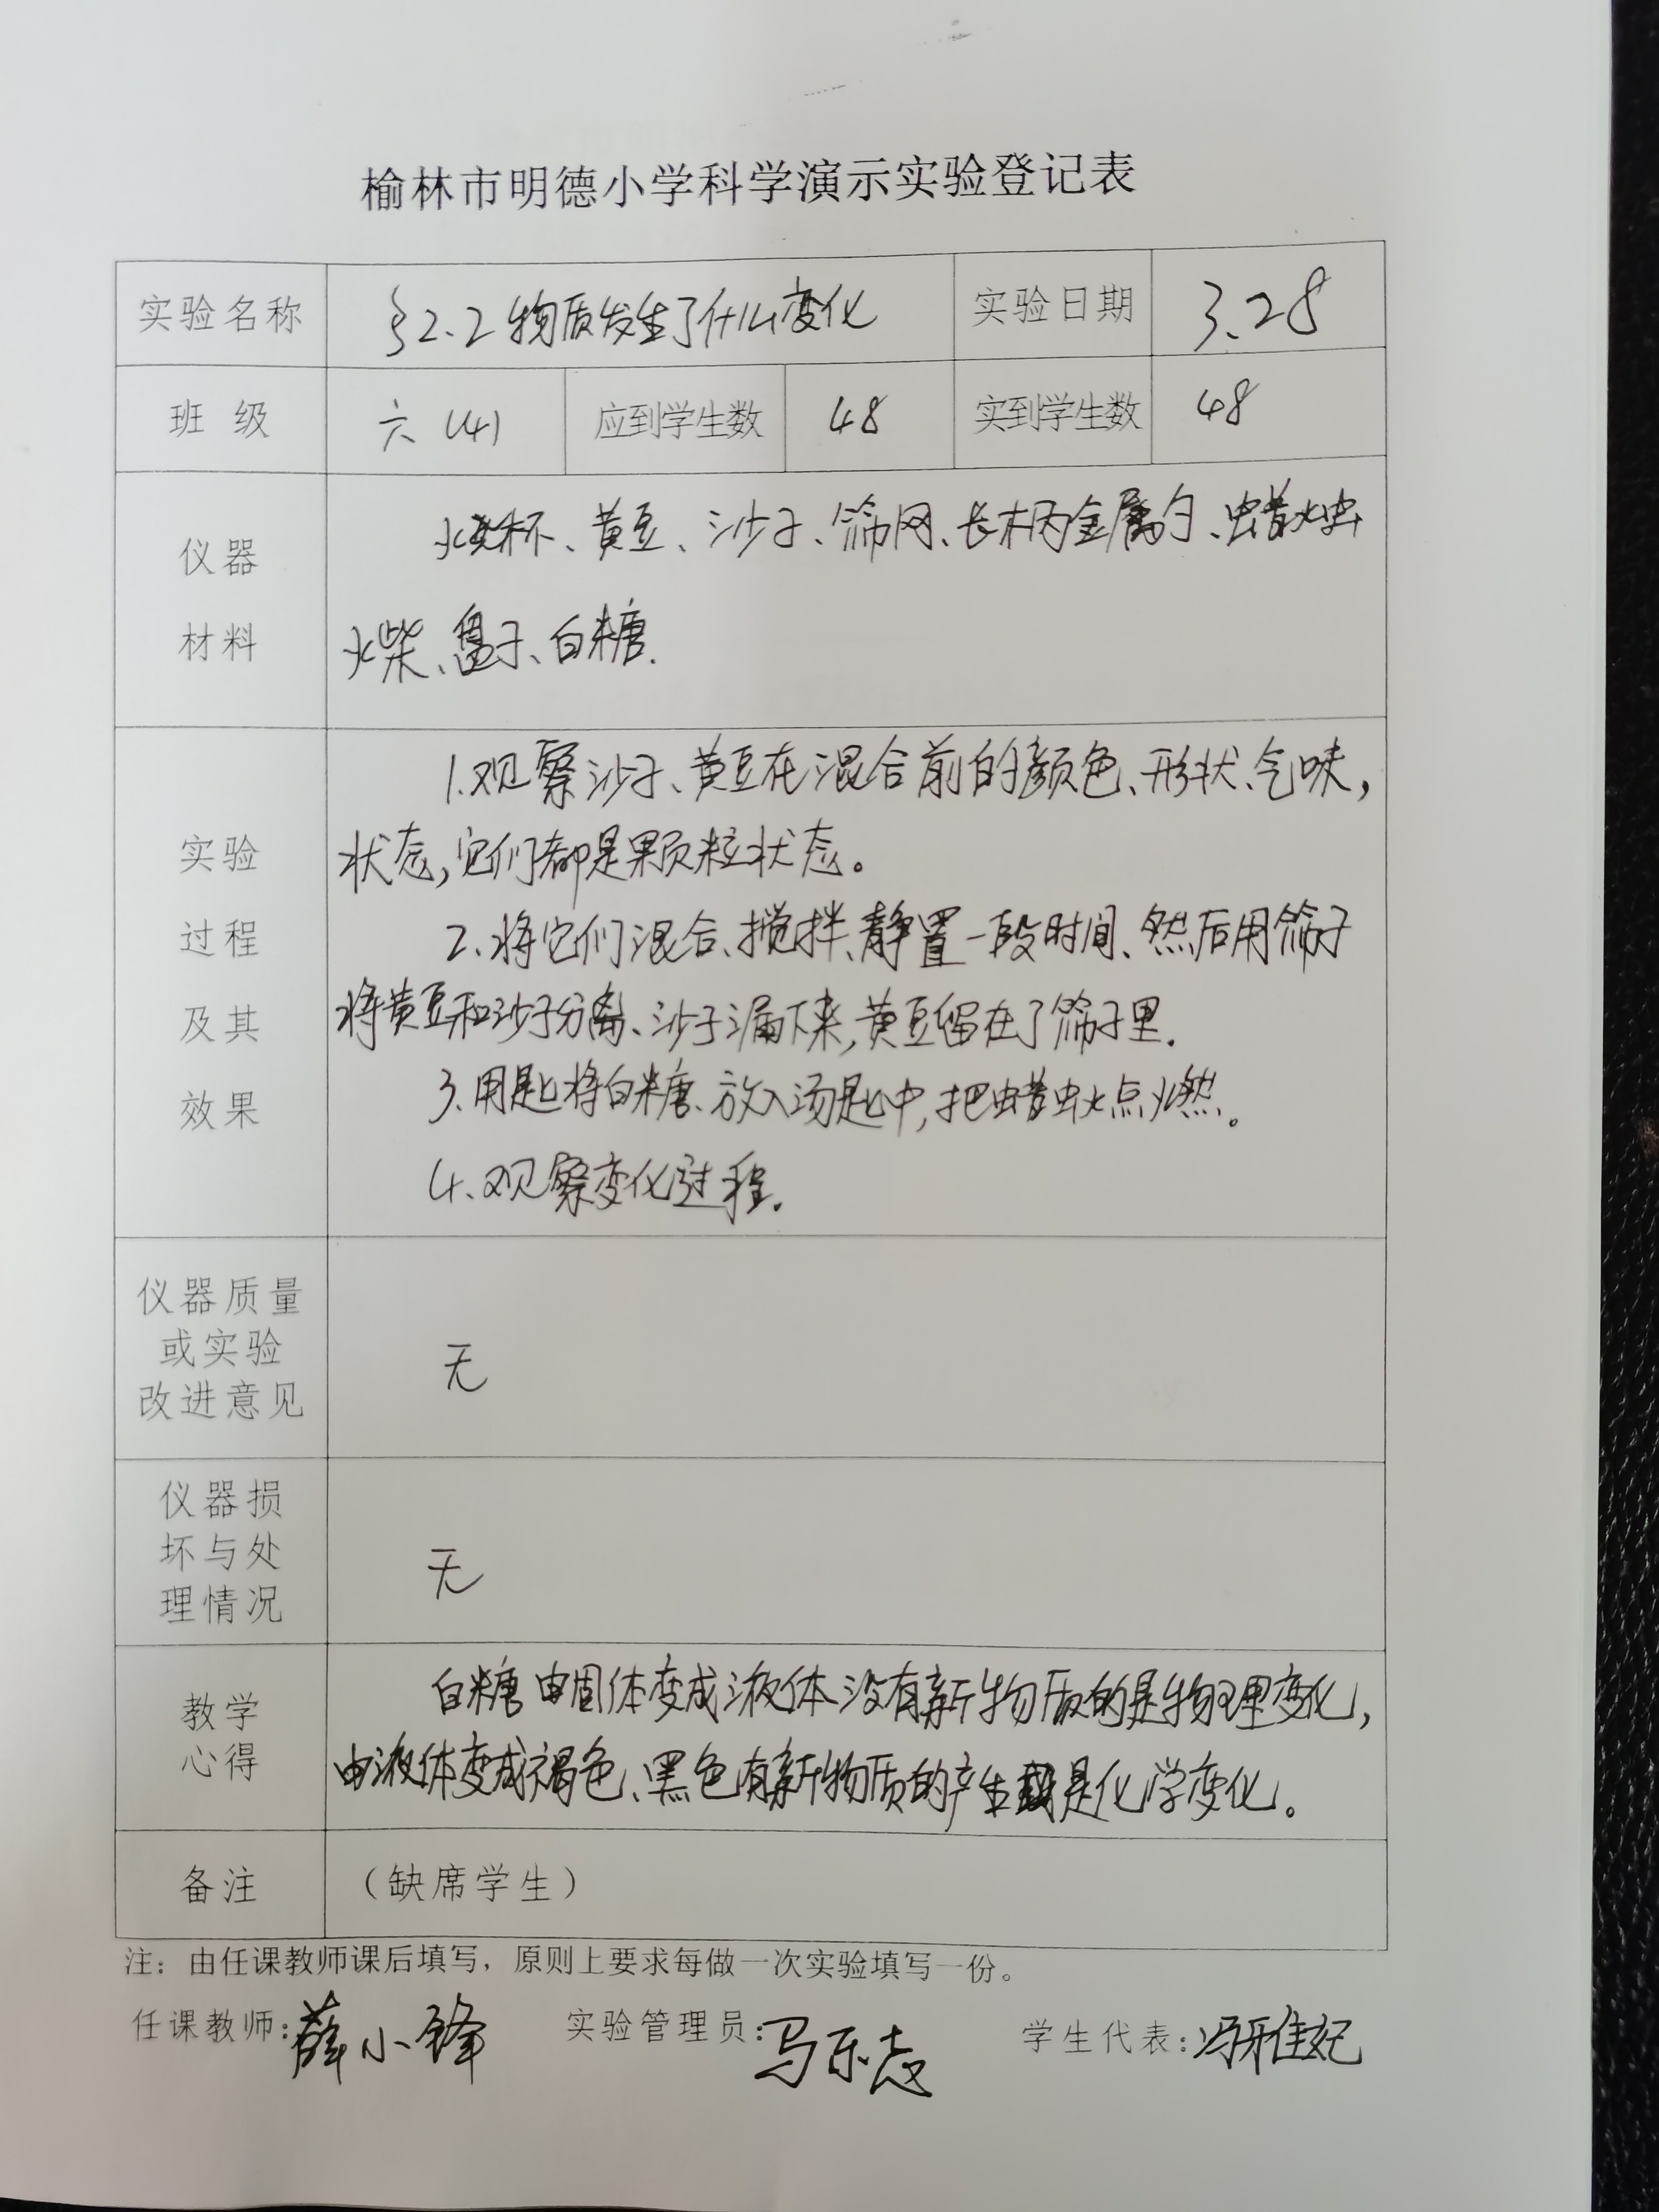 榆林市明德小学科学演示实验登记表
实验名称 §2.2物质发生了什么变化 实验日期 3.28
班 级 六(4) 应到学生数 48 实到学生数 48
仪器
材料
烧杯、黄豆、沙子、筛网、长柄金属勺、蜡烛
火柴、盘子、白糖.
实验
过程
及其
效果
1.观察沙子、黄豆在混合前的颜色、形状、气味,
状态,它们都是颗粒状态。
2、将它们混合、搅拌、静置一段时间、然后用筛子
将黄豆和沙子分离、沙子漏下来,黄豆留在了筛子里.
3、用匙将白糖、放入汤匙中,把蜡烛点燃。
4、观察变化过程.
仪器质量
或实验
改进意见
无
仪器损
坏与处
理情况
无
教学
心得
白糖由固体变成液体没有新物质的是物理变化,
由液体变成褐色、黑色有新物质的产生是化学变化。
备注 (缺席学生)
注:由任课教师课后填写,原则上要求每做一次实验填写一份。
任课教师:薛小锋 实验管理员:马乐志 学生代表:冯雅妃